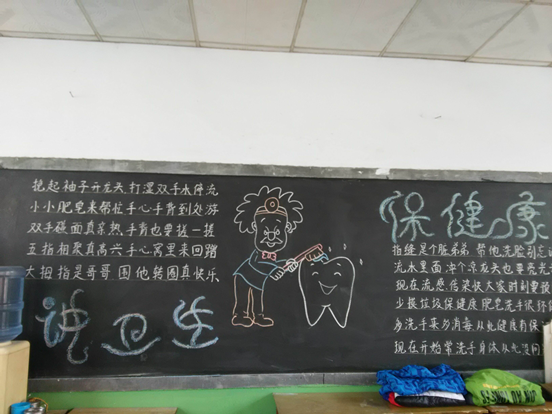 挽起袖子开龙头,打湿双手水停流
小小肥皂来帮忙手心手背到处游
双手碰面真亲热,手背也要搓一搓
五指相聚真高兴手心窝里来回蹭
大拇指是哥哥围他转圈真快乐
讲卫生
保健康
指缝是个脏弟弟 帮他洗脸别忘记
流水里面冲个凉龙头也要亮光
现在流感传染快大家时刻要预
少摸垃圾保健康肥皂洗手很
多洗手柔为消毒从此健康有保
现在开始常洗手身体从此没问